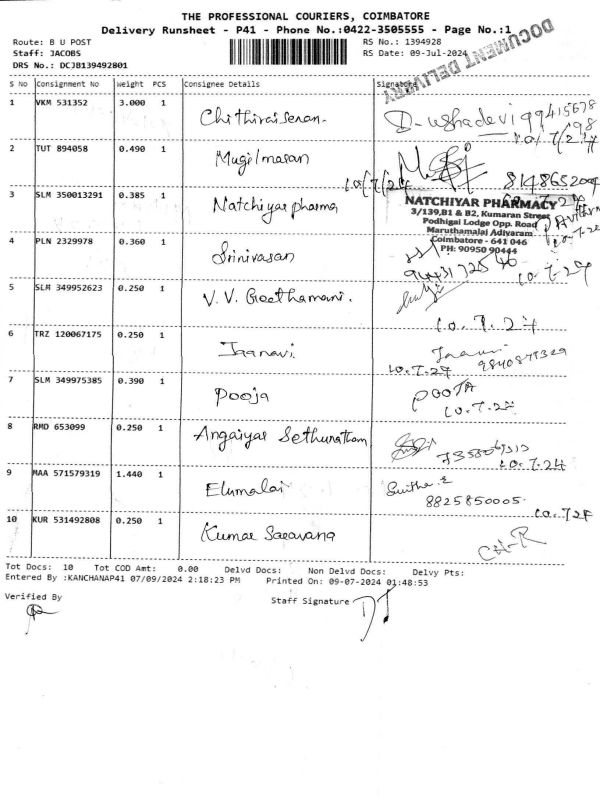 THE PROFESSIONAL COURIERS, COIMBATORE
Delivery Runsheet - P41 - Phone No.:0422-3505555 - Page No.:1
Route: B U POST RS No.: 1394928
Staff: JACOBS RS Date: 09-Jul-2024
DRS No.: DCJB139492801
DOCUMENT DELIVERY
S No Consignment No Weight PCS Consignee Details Signature
1 VKM 531352 3.000 1 Chithiraisenan. D-ushadevi
10/7/24
2 TUT 894058 0.490 1 Mugilmasan
10/7/24
3 SLM 350013291 0.385 1 Natchiyar pharma
NATCHIYAR PHARMACY
3/139,B1 & B2, Kumaran Street
Podhigai Lodge Opp. Road
Maruthamalai Adivaram
Coimbatore - 641 046
PH: 90950 90444
4 PLN 2329978 0.360 1 Srinivasan
10.7.24
5 SLM 349952623 0.250 1 V. V. Geethamani.
10.7.24
6 TRZ 120067175 0.250 1 Jaanavi
10.7.24
7 SLM 349975385 0.390 1 Pooja POOJA
10.7.24
8 RMD 653099 0.250 1 Angaiyar Sethuratham
10.7.24
9 MAA 571579319 1.440 1 Elumalai
8825850005.
10.7.24
10 KUR 531492808 0.250 1 Kumar Saravana
Tot Docs: 10 Tot COD Amt: 0.00 Delvd Docs: Non Delvd Docs: Delvy Pts:
Entered By :KANCHANAP41 07/09/2024 2:18:23 PM Printed On: 09-07-2024 01:48:53
Verified By Staff Signature